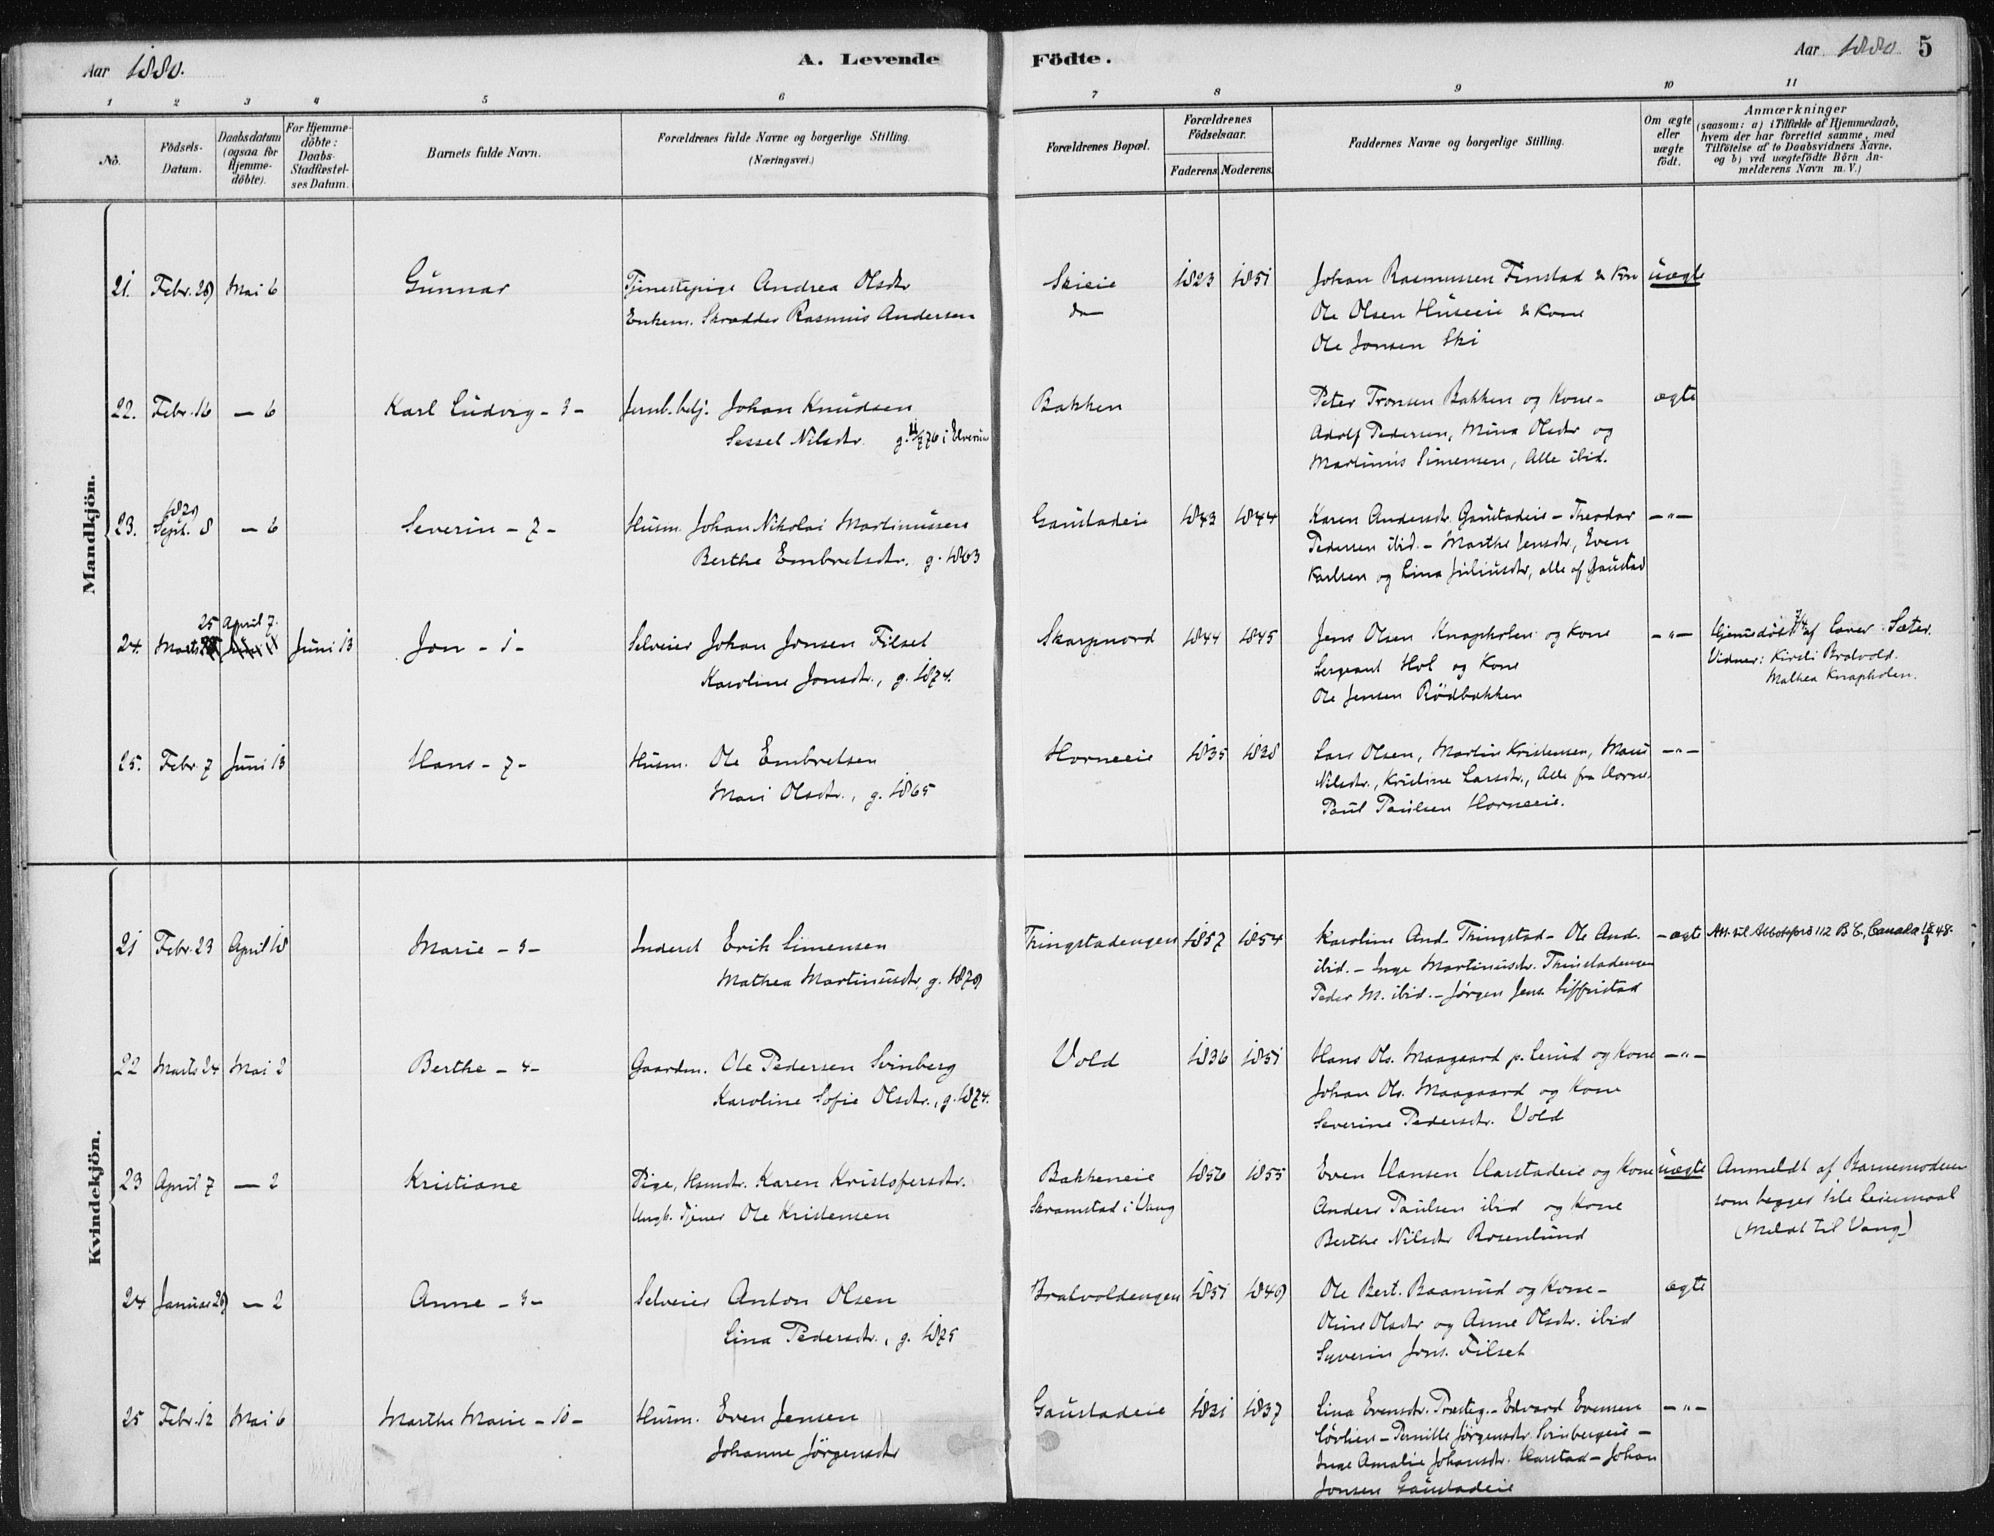 Aar 1880.
A. Levende
Födte.
Aar 1880 5
1 2 3 4 5 6 7 8 9 10 11
No.
Födsels-
Datum.
Daabsdatum
(ogsaa for
Hjemme-
döbte).
For Hjemme-
döbte:
Daabs-
Stadfæstel-
ses Datum.
Barnets fulde Navn.
Forældrenes fulde Navne og borgerlige Stilling.
(Næringsvei.)
Forældrenes Bopæl.
Forældrenes
Födselsaar.
Faderens. Moderens.
Faddernes Navne og borgerlige Stilling.
Om ægte
eller
uægte
födt.
Anmærkninger
(saasom: a) i Tilfælde af Hjemmedaab,
hvem der har forrettet samme, med
Tilföielse af to Daabsvidners Navne,
og b) ved uægtefödte Börn An-
melderens Navn m. V.)
Mandkjön.
21. Febr. 29 Mai 6 Gunnar Tjenestepige Andrea Olsdtr Skieie 1823 1851 Johan Rasmussen Finstad & Kone uægte
Enkem. Skrædder Rasmus Andersen do Ole Olsen Huseeie & Kone
Ole Jonsen Ski
22. Febr. 16 — 6 Karl Ludvig - 3 - Jernb.betj. Johan Knudsen Bakken Peter Tronsen Bakken og Kone - ægte
Sessel Nilsdtr. g. 76 i Elverum Adolf Pedersen, Mina Olsdtr og
Martinus Simensen, Alle ibid.
23. 1879 Sept. 8 — 6 Severin - 7 - Husm. Johan Nikolai Martinussen Gaustadeie 1843 1844 Karen Andersdtr. Gaustadeie - Theodor -"-
Berthe Embretsdtr. g. 1863 Pedersen ibid. - Marthe Jensdtr, Even
Karlsen og Lina Juliusdtr, alle af Gaustad
24. Marts 25 April 7. Juni 13 Jon - 1 - Selveier Johan Jonsen Filset Skarpnord 1844 1845 Jens Olsen Knapholen og Kone -"- Hjemmedøbt af Sæter.
Karoline Jonsdtr., g. 1874. Sergeant Hol og Kone Vidner: Kirsti Bratvold.
Ole Jensen Rödbakken Mathea Knapholen.
25. Febr. 7 Juni 13 Hans - 7 - Husm. Ole Embretsen Horneeie 1835 1838 Lars Olsen, Martin Kristensen, Mari -"-
Mari Olsdtr., g. 1865 Nilsdtr., Kristine Larsdtr., Alle fra Horne.
Paul Paulsen Horneeie.
Kvindekjön.
21 Febr. 23 April 18 Marie - 3 - Inderst Erik Simensen Thingstadengen 1857 1854 Karoline And. Thingstad - Ole And. - ægte Att. til Abbotsford 112 B C, Canada 48.
Mathea Martinusdtr, g. 1879 ibid. - Inge Martinusdtr. Thingstadengen
Peder M. ibid. - Jørgen Jens.
22 Marts 24 Mai 2 Berthe - 4 - Gaardm. Ole Pedersen Svinberg Vold 1836 1851 Hans Ols. Maagaard og Kone -"-
Karoline Sofie Olsdtr., g. 1874. Johan Ols. Maagaard og Kone
Severine Pedersdtr. Vold
23 April 7 — 2 Kristiane Pige, Husmdtr. Karen Kristofersdtr. Bakkeneie 1856 1855 Even Hansen Harstadeie og Kone uægte Anmeldt af Barnemoderen
Ungk. Tjener Ole Kristensen Skramstad i Vang Anders Paulsen ibid og Kone som begges 1ste Leiermaal
Berthe Nilsdtr Rosenlund (Meldt til Vang)
24 Januar 29 — 2 Anne - 3 - Selveier Anton Olsen Bratvoldengen 1851 1849 Ole Bert. Baanrud og Kone - ægte
Lina Pedersdtr., g. 1875 Oline Olsdtr og Anne Olsdtr. ibid
Severin Jons. Filset
25 Febr. 12 Mai 6 Marthe Marie - 10 - Husm. Even Jensen Gaustadeie 1831 1837 Lina Evensdtr. Præsteg. - Edvard Evensen -"-
Johanne Jørgensdtr Løvlien - Pernille Jørgensdtr. Svinbergeie -
Inge Amalie Johansdtr. Harstad - Johan
Jonsen Gaustadeie